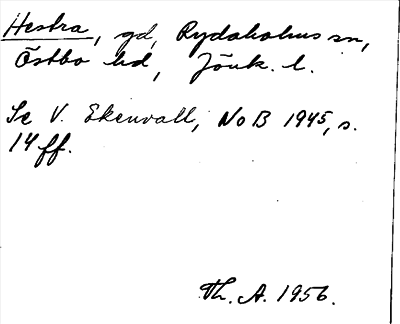 Hestra, gd, Rydaholms sn,
Östbo hd, Jönk. l.
Se V. Ekenvall, NoB 1945, s.
14 ff.
Th. A. 1956.